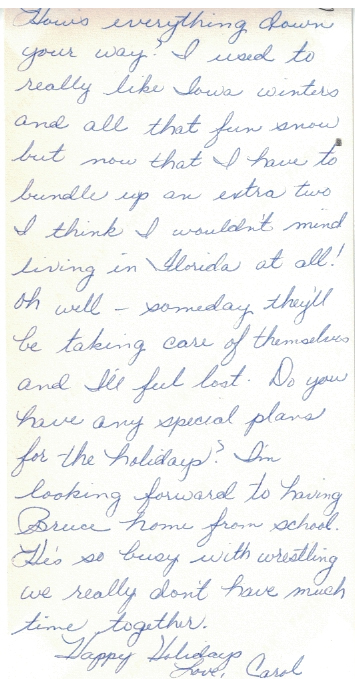 How's everything down
your way? I used to
really like Iowa winters
and all that fun snow
but now that I have to
bundle up an extra two
I think I wouldn't mind
living in Florida at all!
Oh well - someday they'll
be taking care of themselves
and I'll feel lost. Do you
have any special plans
for the holidays? I'm
looking forward to having
Bruce home from school.
He's so busy with wrestling
we really don't have much
time together.
Happy Holidays
Love, Carol